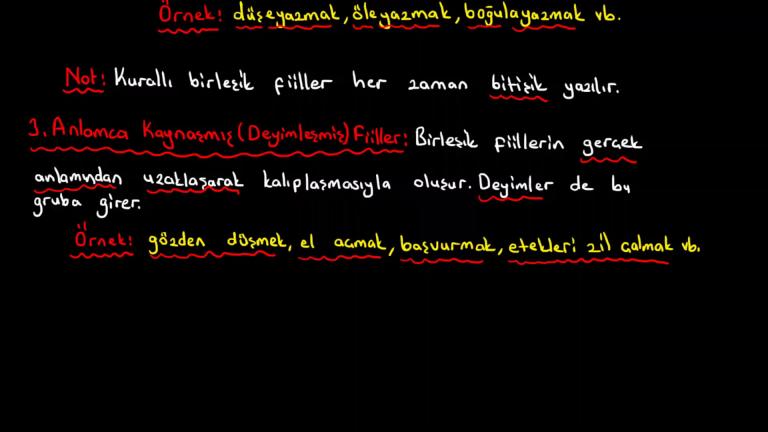 Örnek: düşeyazmak, öleyazmak, boğulayazmak vb.
Not: Kurallı birleşik fiiller her zaman bitişik yazılır.
3. Anlamca Kaynaşmış (Deyimleşmiş) Fiiller: Birleşik fiillerin gerçek
anlamından uzaklaşarak kalıplaşmasıyla oluşur. Deyimler de bu
gruba girer.
Örnek: gözden düşmek, el açmak, başvurmak, etekleri zil çalmak vb.